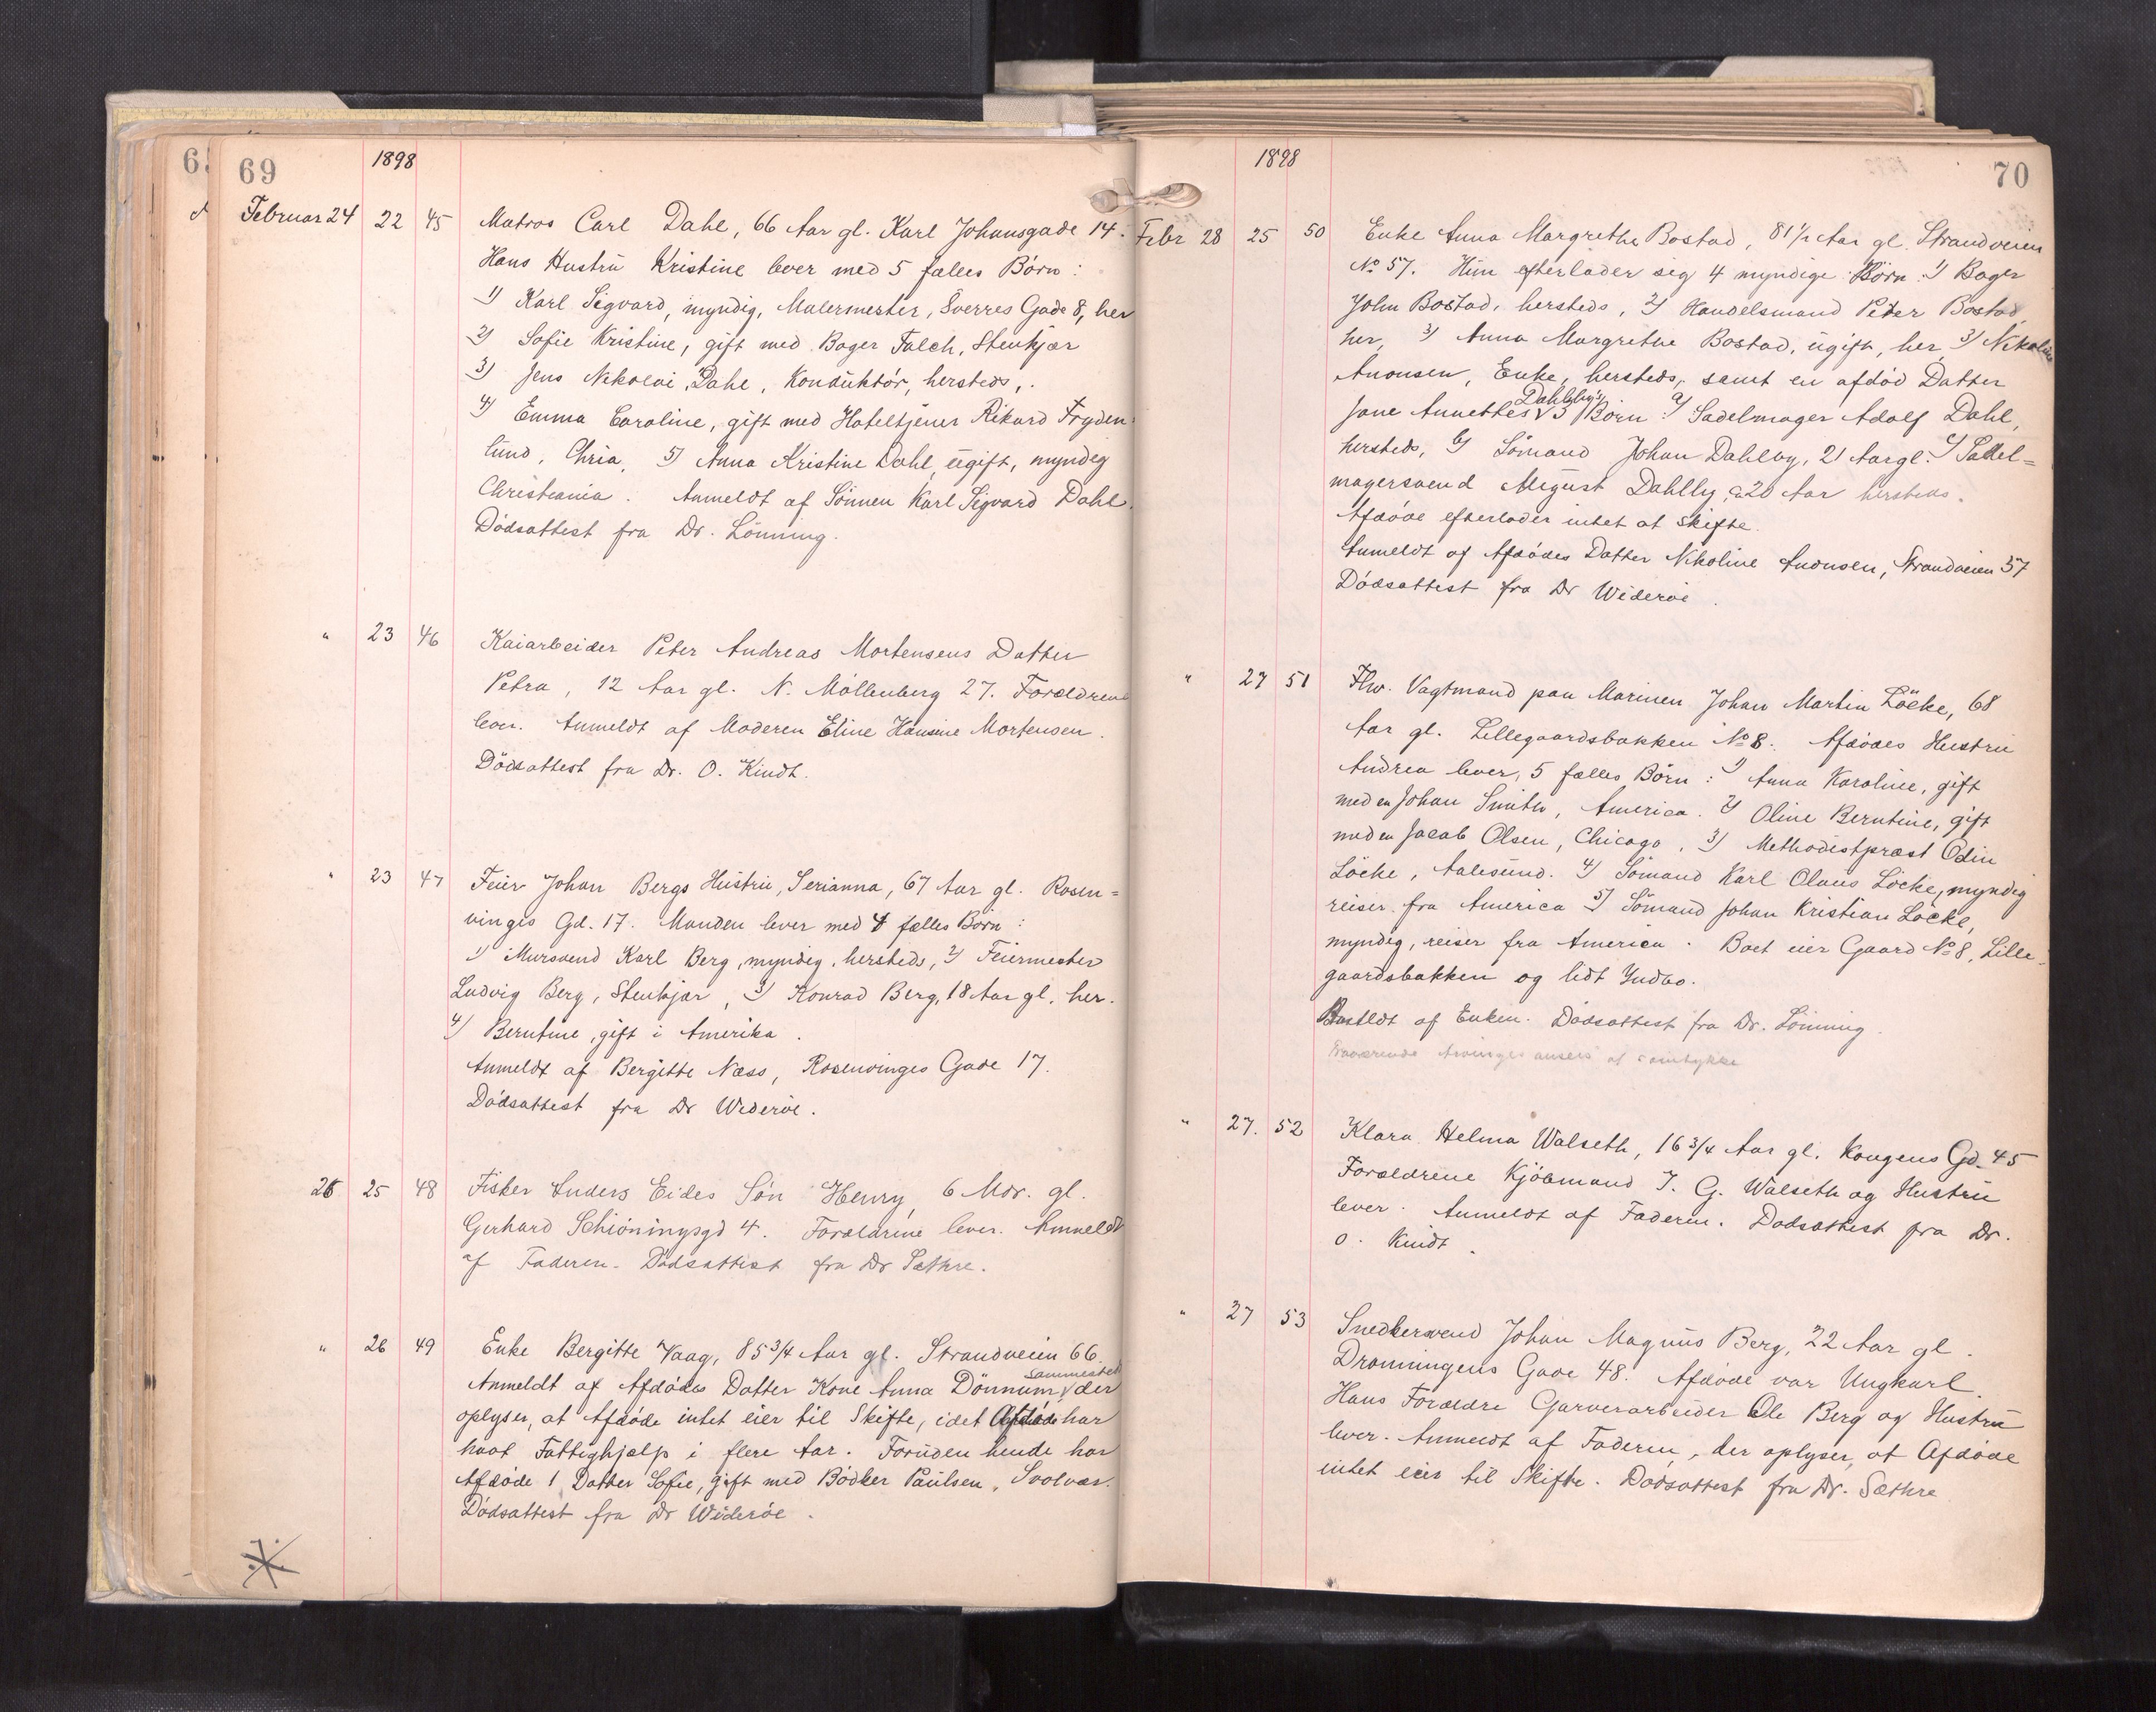 69
1898
Februar 24 22 45 Matros Carl Dahl, 66 Aar gl. Karl Johansgade 14.
Hans Hustru Kristine lever med 5 fælles Børn:
1) Karl Sigvard, myndig, Malermester, Sverres Gade 8, her
2) Sofie Kristine, gift med Bager Falch, Stenkjær
3) Jens Nikolai Dahl, Konduktør, hersteds,.
4) Emma Caroline, gift med Hoteltjener Rikard Fryden
lund, Chria, 5) Anna Kristine Dahl, ugift, myndig
Christiania. Anmeldt af Sønnen Karl Sigvard Dahl.
Dødsattest fra Dr. Lønning.
" 23 46 Kaiarbeider Peter Andreas Mortensens Datter
Petra, 12 Aar gl. N. Møllenberg 27. Forældrene
lever. Anmeldt af Moderen Eline Hansine Mortensen.
Dødsattest fra Dr. O. Kindt.
" 23 47 Feier Johan Bergs Hustru, Serianna, 67 Aar gl. Rosen=
vinges Gd. 17. Manden lever med 4 fælles Børn:
1) Mursvend Karl Berg, myndig, hersteds, 2) Feiermester
Ludvig Berg, Stenkjær, 3) Konrad Berg, 18 Aar gl. her.
4) Berntine, gift i Amerika.
Anmeldt af Bergitte Næss, Rosenvinges Gade 17.
Dødsattest fra Dr Widerøe.
26 25 48 Fisker Anders Eides Søn Henry, 6 Mdr. gl.
Gerhard Schiøningsgd 4. Forældrene lever. Anmeldt
af Faderen. Dødsattest fra Dr Sæthre.
" 26 49 Enke Bergitte Vaag, 85 3/4 Aar gl. Strandveien 66.
sammesteds
Anmeldt af Afdødes Datter Kone Anna Dønnum, der
oplyser, at Afdøde intet eier til Skifte, idet Afdøde har
havt Fattighjælp i flere Aar. Foruden hende har
Afdøde 1 Datter Sofie, gift med Bødker Paulsen, Svolvær.
Dødsattest fra Dr Widerøe.
70
1898
Febr 28 25 50 Enke Anna Margrethe Bostad, 81 1/2 Aar gl. Strandveien
No 57. Hun efterlader sig 4 myndige Børn: 1) Bager
John Bostad, hersteds, 2) Handelsmand Peter Bostad,
her, 3) Anna Margrethe Bostad, ugift, her, 3) Nikoline
Anonsen, Enke, hersteds, samt en afdød Datter
Dahlby's
Jane Annettes 3 Børn: a) Sadelmager Adolf Dahl,
hersteds, b) Sømand Johan Dahlby, 21 Aar gl. c) Sadel=
magersvend August Dahlby, ca 20 Aar hersteds.
Afdøde efterlader intet at skifte.
Anmeldt af Afdødes Datter Nikoline Anonsen, Strandveien 57
Dødsattest fra Dr Widerøe.
" 27 51 Fhv. Vagtmand paa Marinen Johan Martin Løcke, 68
Aar gl. Lillegaardsbakken No 8. Afdødes Hustru
Andrea lever, 5 fælles Børn: 1) Anna Karoline, gift
med en Johan Smith, America. 2) Oline Berntine, gift
med en Jacob Olsen, Chicago, 3) Methodistpræst Odin
Løcke, Aalesund. 4) Sømand Karl Olaus Løcke, myndig
reiser fra America 5) Sømand Johan Kristian Løcke,
myndig, reiser fra America. Boet eier Gaard No 8, Lille
gaardsbakken og lidt Indbo.
Anmeldt af Enken. Dødsattest fra Dr. Lønning.
Fraværende Arvinger ansees at samtykke
" 27. 52 Klara Helma Walseth, 16 3/4 Aar gl. Kongens Gd. 45
Forældrene Kjøbmand J. G. Walseth og Hustru
lever. Anmeldt af Faderen. Dødsattest fra Dr.
O. Kindt.
" 27 53 Snedkersvend Johan Magnus Berg, 22 Aar gl.
Dronningens Gade 48. Afdøde var Ungkarl.
Hans Forældre Garverarbeider Ole Berg og Hustru
lever. Anmeldt af Faderen, der oplyser, at Afdøde
intet eier til Skifte. Dødsattest fra Dr. Sæthre